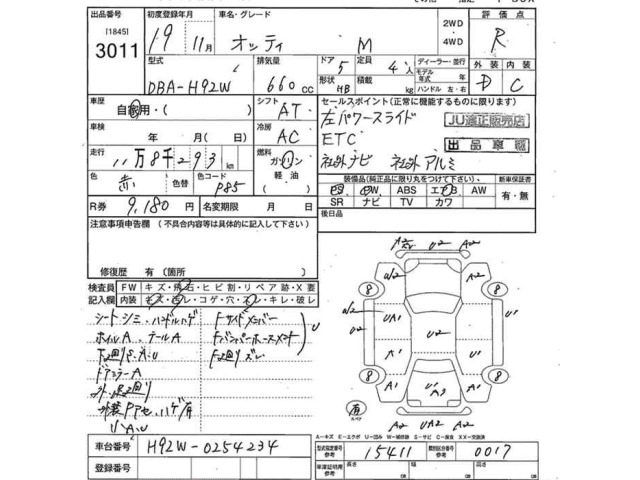 出品番号 初度登録年月 車名・グレード 2WD・4WD 評価点
[1845]
3011 19 11月 オッティ M R
型式 排気量 ドア 5 定員 4人 ディーラー・並行 外装 内装
DBA-H92W 660cc 形状 HB 積載 kg モデル年式 年 ハンドル 左・右 D C
車歴 自家用・( ) シフト AT セールスポイント(正常に機能するものに限ります)
左パワースライド JU適正販売店
車検 年 月( 日) 冷房 AC ETC 出品車輌
走行 11万8千293km 燃料 ガソリン・軽油 社外ナビ 社外アルミ
色 赤 色替 色コード P85 装備品(純正品に限り丸をつけて下さい) 新車保証書
PS PW ABS エアB AW 有・無
R券 9,180円 名変期限 月 日 SR ナビ TV カワ
注意事項申告欄(不具合内容等は具体的に記入して下さい) 後日品
修復歴 有(箇所 )
検査員 FW キズ・飛石・ヒビ割・リペア跡・X要
記入欄 内装 キズ・汚レ・コゲ・穴・スレ・キレ・破レ
シートシミ、ハンドルハゲ Fサイドメンバー
ホイルA、テールA Fバンパーホースメント U
F2回リズレ
ドアミラーA
A2 U2 A2
W2 U2
8 8
W2 UA1 U2
A1 U1
8 A1 U1 A3 A1 8
有 スペア
A2 UA2 A2
A-キズ E-エクボ U-凹み W-補修跡 S-サビ C-腐食 XX-交換済
車台番号 H92W-0254234 型式指定番号 参考 15411 類別区分番号 参考 0017
登録番号 車庫証明用 参考 長さ 幅 高さ